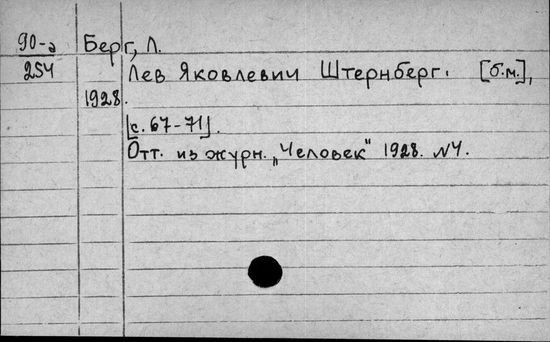 90-а Берг, Л.
254 Лев Яковлевич Штернберг. [б.м.],
1928.
[с. 67-71].
Отт. из журн. „Человек“ 1928. №4.